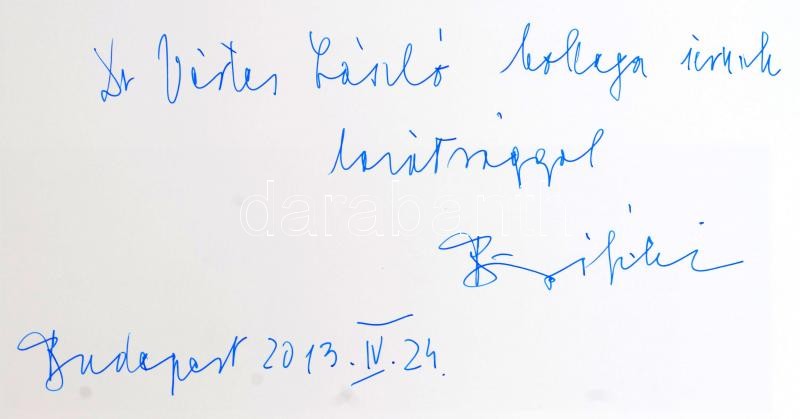 Dr Vértes László kollega úrnak
barátsággal
darabanth
Budapest 2013. IV. 24.